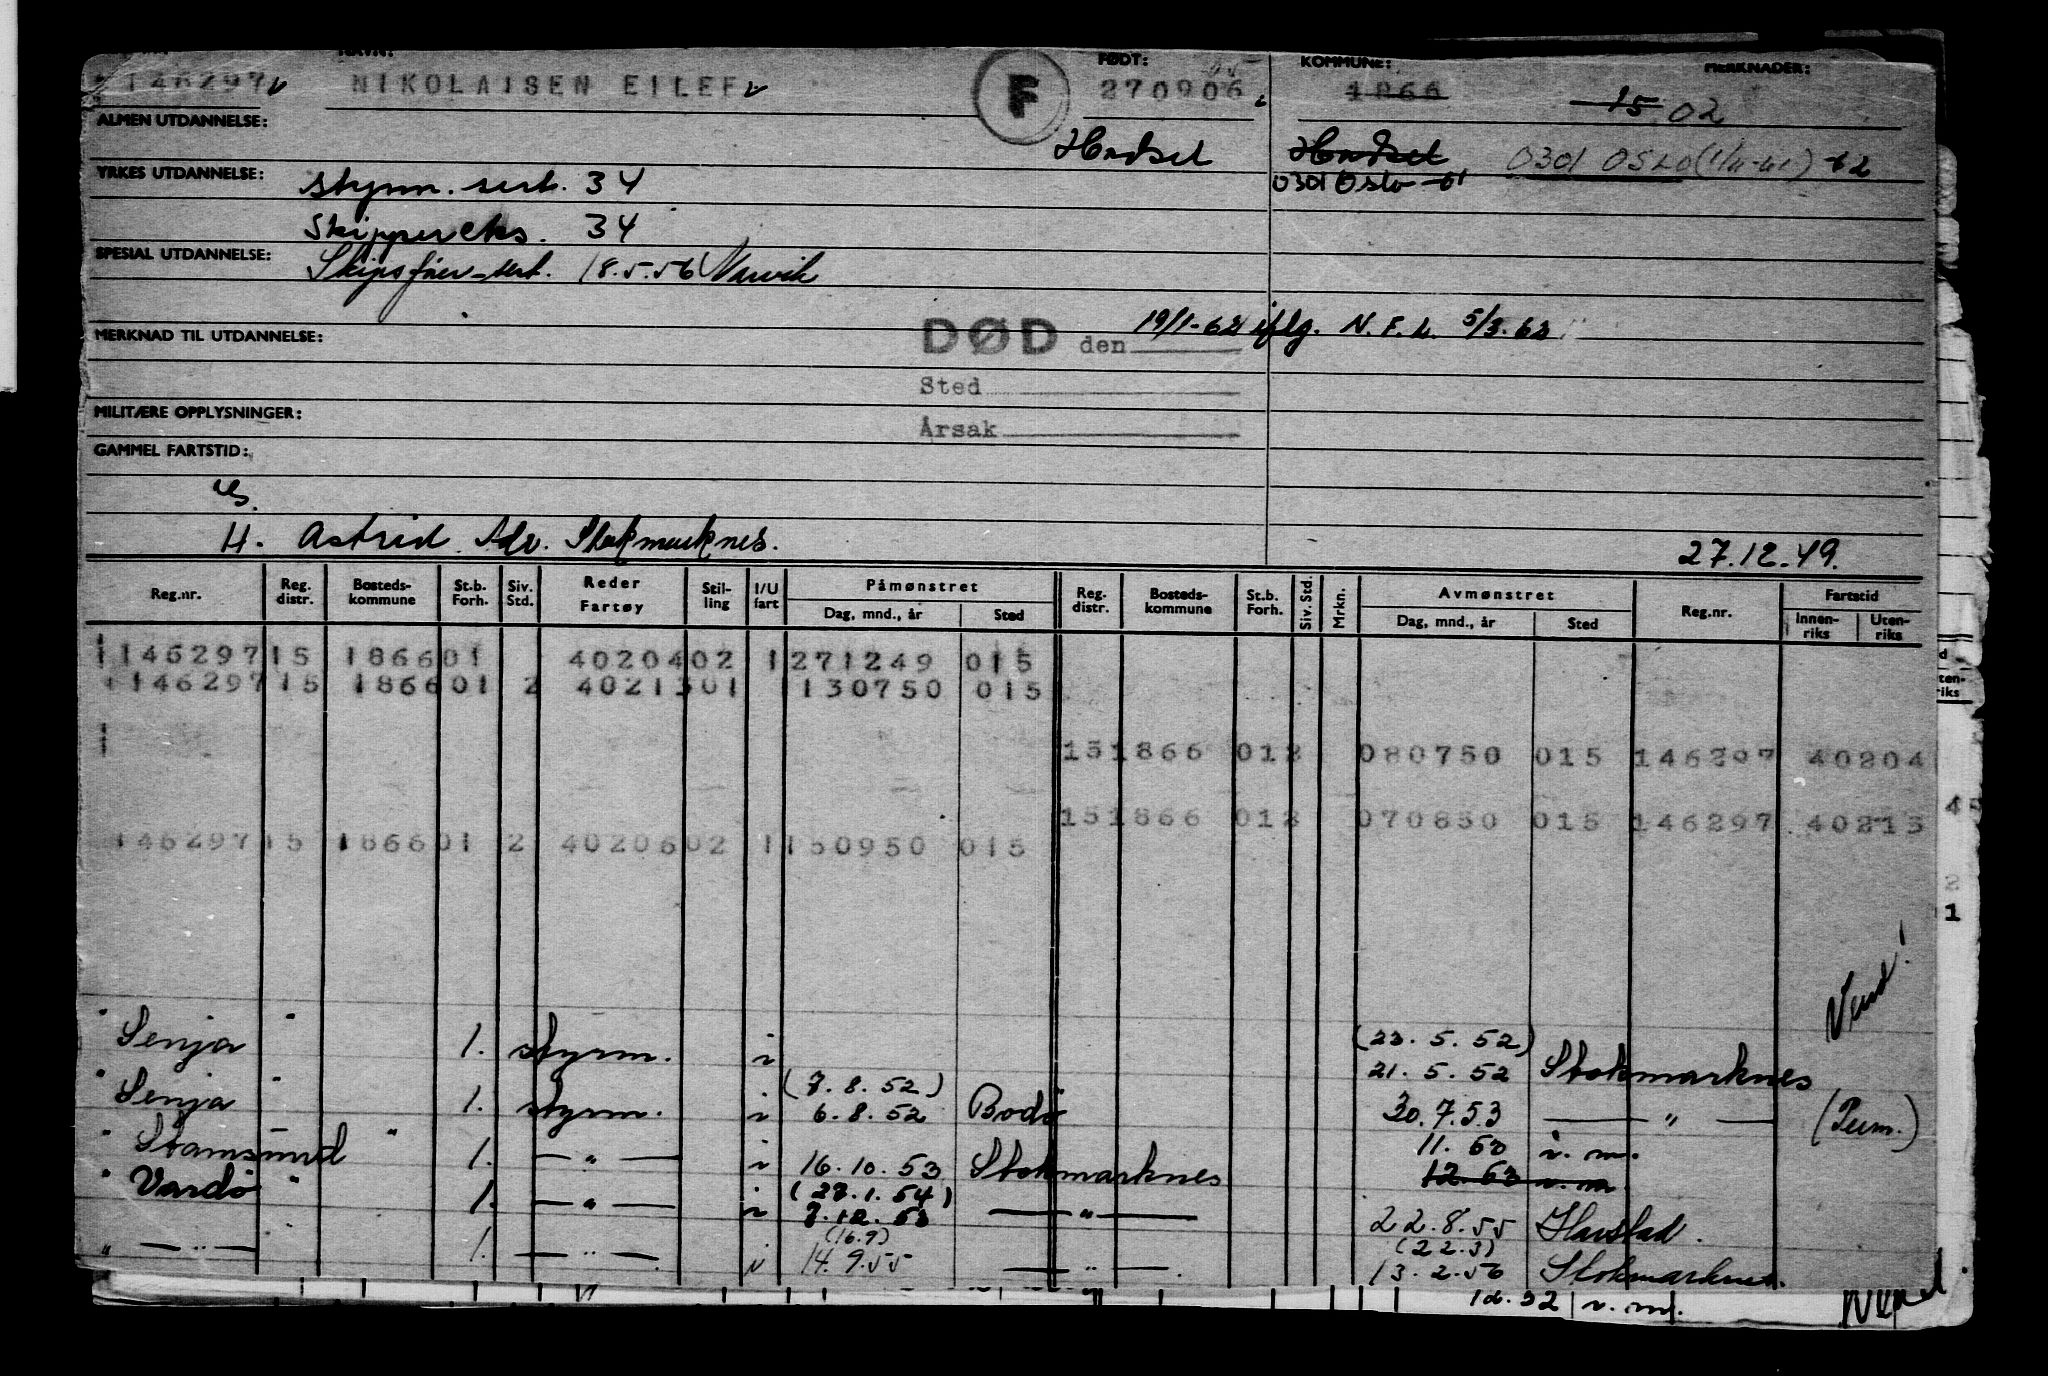 NAVN: FØDT: KOMMUNE: MERKNADER:
146297 NIKOLAISEN EILEF F 270906 1866 15 02
ALMEN UTDANNELSE: Hadsel Hadsel 0301 OSLO (1/11-61) -62
YRKES UTDANNELSE: styrm. sert. 34 0301 Oslo -61
Skippereks. 34
SPESIAL UTDANNELSE: Skipsfører-sert. 18.5.56 Narvik
MERKNAD TIL UTDANNELSE: DØD den 19/1-62 iflg. N.F.L. 5/3.62
Sted
MILITÆRE OPPLYSNINGER: Årsak
GAMMEL FARTSTID:
H. Astrid Adr. Stokmarknes. 27.12.49.
Reg.nr. Reg. distr. Bosteds- kommune St.b. Forh. Siv. Std. Reder Fartøy Stil- ling I/U fart Påmønstret Reg. distr. Bosteds- kommune St.b. Forh. Siv. Std. Mrkn. Avmønstret Reg.nr. Fartstid
Dag, mnd., år Sted Dag, mnd., år Sted Innen- riks Uten- riks
1146297 15 1866 01 40204 02 1 271249 015
1146297 15 1866 01 2 40213 01 1 130750 015
1 15 1866 01 2 080750 015 146297 40204
15 1866 01 2 070850 015 146297 40213
146297 15 1866 01 2 40206 02 1 150950 015
Vend!
" Senja " 1. styrm. i (23.5.52)
21.5.52 Stokmarknes
" Senja " 1. styrm. i (7.8.52)
6.8.52 Bodø 30.7.53 — " — (Perm.)
" Stamsund " 1. — " — i 16.10.53 Stokmarknes 11.53 i. m.
12.53 i. m.
" Vardø " 1. — " — i (27.1.54)
7.12.53 — " — 22.8.55 Harstad.
" — " — 1. — " — i (16.9)
14.9.55 — " — (22.3)
13.2.56 Stokmarknes.
12.52 i. m.